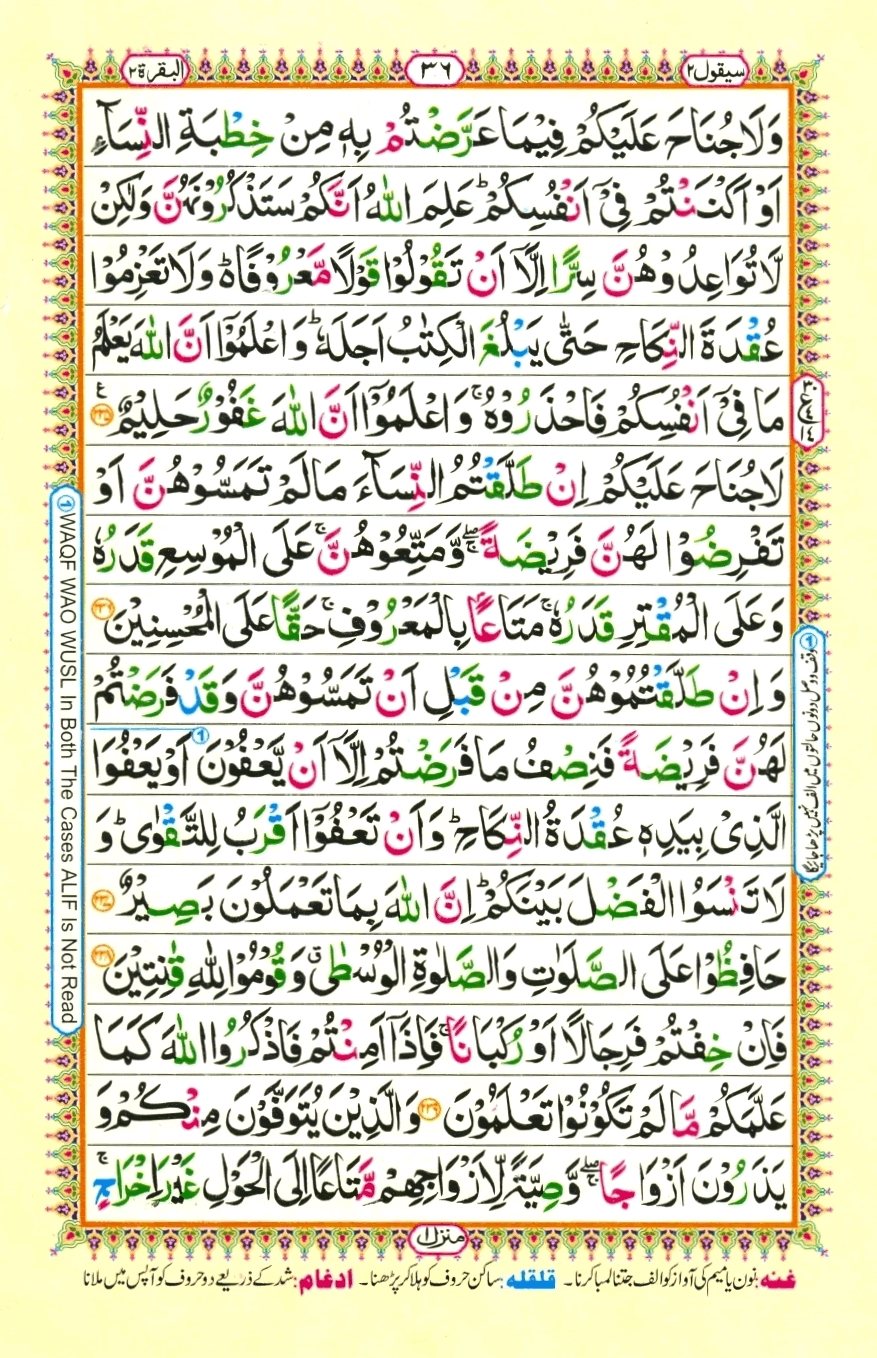 سیقول ۲
۳۶
البقرة ۲
وَلَا جُنَاحَ عَلَيْكُمْ فِيْمَا عَرَّضْتُمْ بِهٖ مِنْ خِطْبَةِ النِّسَآءِ
اَوْ اَكْنَنْتُمْ فِىْٓ اَنْفُسِكُمْ ؕ عَلِمَ اللّٰهُ اَنَّكُمْ سَتَذْكُرُوْنَهُنَّ وَلٰكِنْ
لَّا تُوَاعِدُوْهُنَّ سِرًّا اِلَّاۤ اَنْ تَقُوْلُوْا قَوْلًا مَّعْرُوْفًا ۬ؕ وَلَا تَعْزِمُوْا
عُقْدَةَ النِّكَاحِ حَتّٰى يَبْلُغَ الْكِتٰبُ اَجَلَهٗ ؕ وَاعْلَمُوْۤا اَنَّ اللّٰهَ يَعْلَمُ
مَا فِىْٓ اَنْفُسِكُمْ فَاحْذَرُوْهُ ۚ وَاعْلَمُوْۤا اَنَّ اللّٰهَ غَفُوْرٌ حَلِيْمٌ ﴿۲۳۵﴾
لَا جُنَاحَ عَلَيْكُمْ اِنْ طَلَّقْتُمُ النِّسَآءَ مَا لَمْ تَمَسُّوْهُنَّ اَوْ
تَفْرِضُوْا لَهُنَّ فَرِيْضَةً ۖۚ وَّمَتِّعُوْهُنَّ ۚ عَلَى الْمُوْسِعِ قَدَرُهٗ
وَعَلَى الْمُقْتِرِ قَدَرُهٗ ۚ مَتَاعًۢا بِالْمَعْرُوْفِ ۚ حَقًّا عَلَى الْمُحْسِنِيْنَ ﴿۲۳۶﴾
وَاِنْ طَلَّقْتُمُوْهُنَّ مِنْ قَبْلِ اَنْ تَمَسُّوْهُنَّ وَقَدْ فَرَضْتُمْ
لَهُنَّ فَرِيْضَةً فَنِصْفُ مَا فَرَضْتُمْ اِلَّاۤ اَنْ يَّعْفُوْنَ اَوْ يَعْفُوَا 1
الَّذِىْ بِيَدِهٖ عُقْدَةُ النِّكَاحِ ؕ وَاَنْ تَعْفُوْۤا اَقْرَبُ لِلتَّقْوٰى ؕ وَ
لَا تَنْسَوُا الْفَضْلَ بَيْنَكُمْ ؕ اِنَّ اللّٰهَ بِمَا تَعْمَلُوْنَ بَصِيْرٌ ﴿۲۳۷﴾
حَافِظُوْا عَلَى الصَّلَوٰتِ وَالصَّلٰوةِ الْوُسْطٰى ۗ وَقُوْمُوْا لِلّٰهِ قٰنِتِيْنَ ﴿۲۳۸﴾
فَاِنْ خِفْتُمْ فَرِجَالًا اَوْ رُكْبَانًا ۚ فَاِذَاۤ اَمِنْتُمْ فَاذْكُرُوا اللّٰهَ كَمَا
عَلَّمَكُمْ مَّا لَمْ تَكُوْنُوْا تَعْلَمُوْنَ ﴿۲۳۹﴾ وَالَّذِيْنَ يُتَوَفَّوْنَ مِنْكُمْ وَ
يَذَرُوْنَ اَزْوَاجًا ۖۚ وَّصِيَّةً لِّاَزْوَاجِهِمْ مَّتَاعًا اِلَى الْحَوْلِ غَيْرَ اِخْرَاجٍ ۚ
۳۰ ع ۱۴
1 وقف و وصل دونوں حالتوں میں الف نہیں پڑھا جائیگا
1 WAQF WAO WUSL In Both The Cases ALIF Is Not Read
منزل ۱
غنہ: نون یا میم کی آواز کو الف جتنا لمبا کرنا۔ قلقلہ: ساکن حروف کو ہلا کر پڑھنا۔ ادغام: شد کے ذریعے دو حروف کو آپس میں ملانا